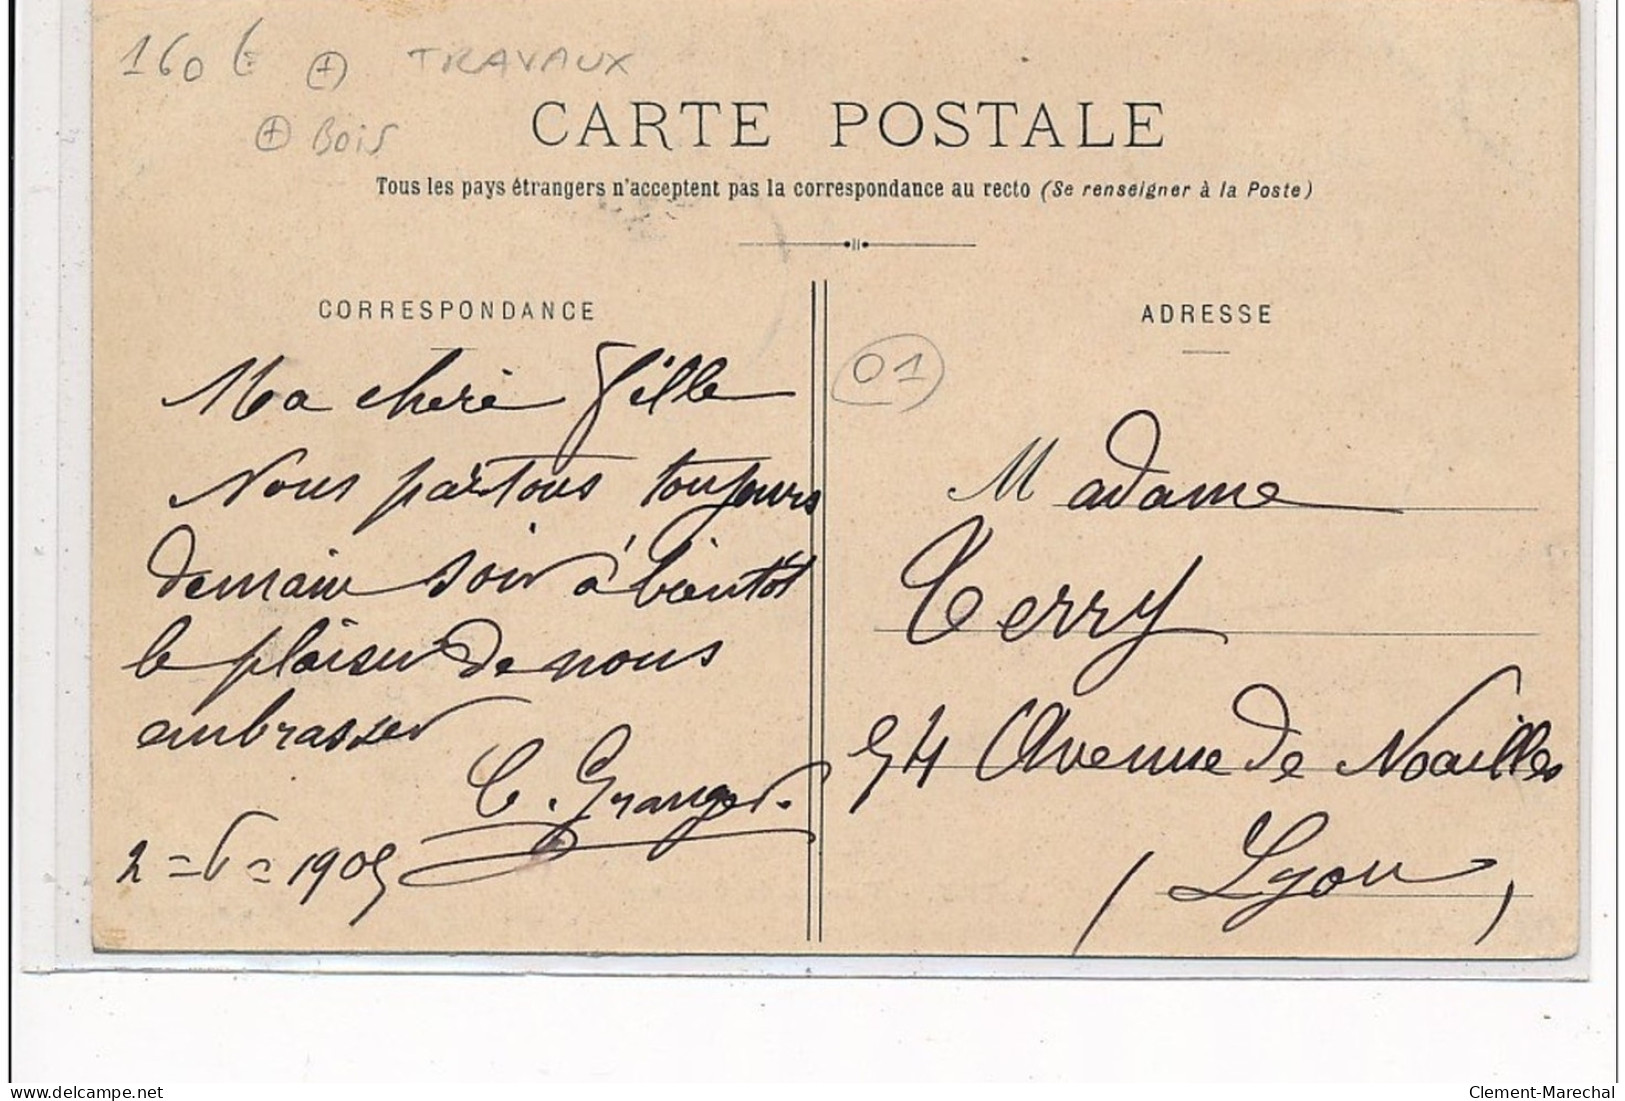 160 € + TRAVAUX
+ Bois
CARTE POSTALE
Tous les pays étrangers n'acceptent pas la correspondance au recto (Se renseigner à la Poste)
CORRESPONDANCE
Ma cheré fille
Nous partons toujours
demain soir à bientôt
le plaisir de nous
embrasser
C. Granger.
2 = 6 = 1905
ADRESSE
01
Madame
Terry
54 Avenue de Noailles
(Lyon)
delcampe.net
Clement-Marechal